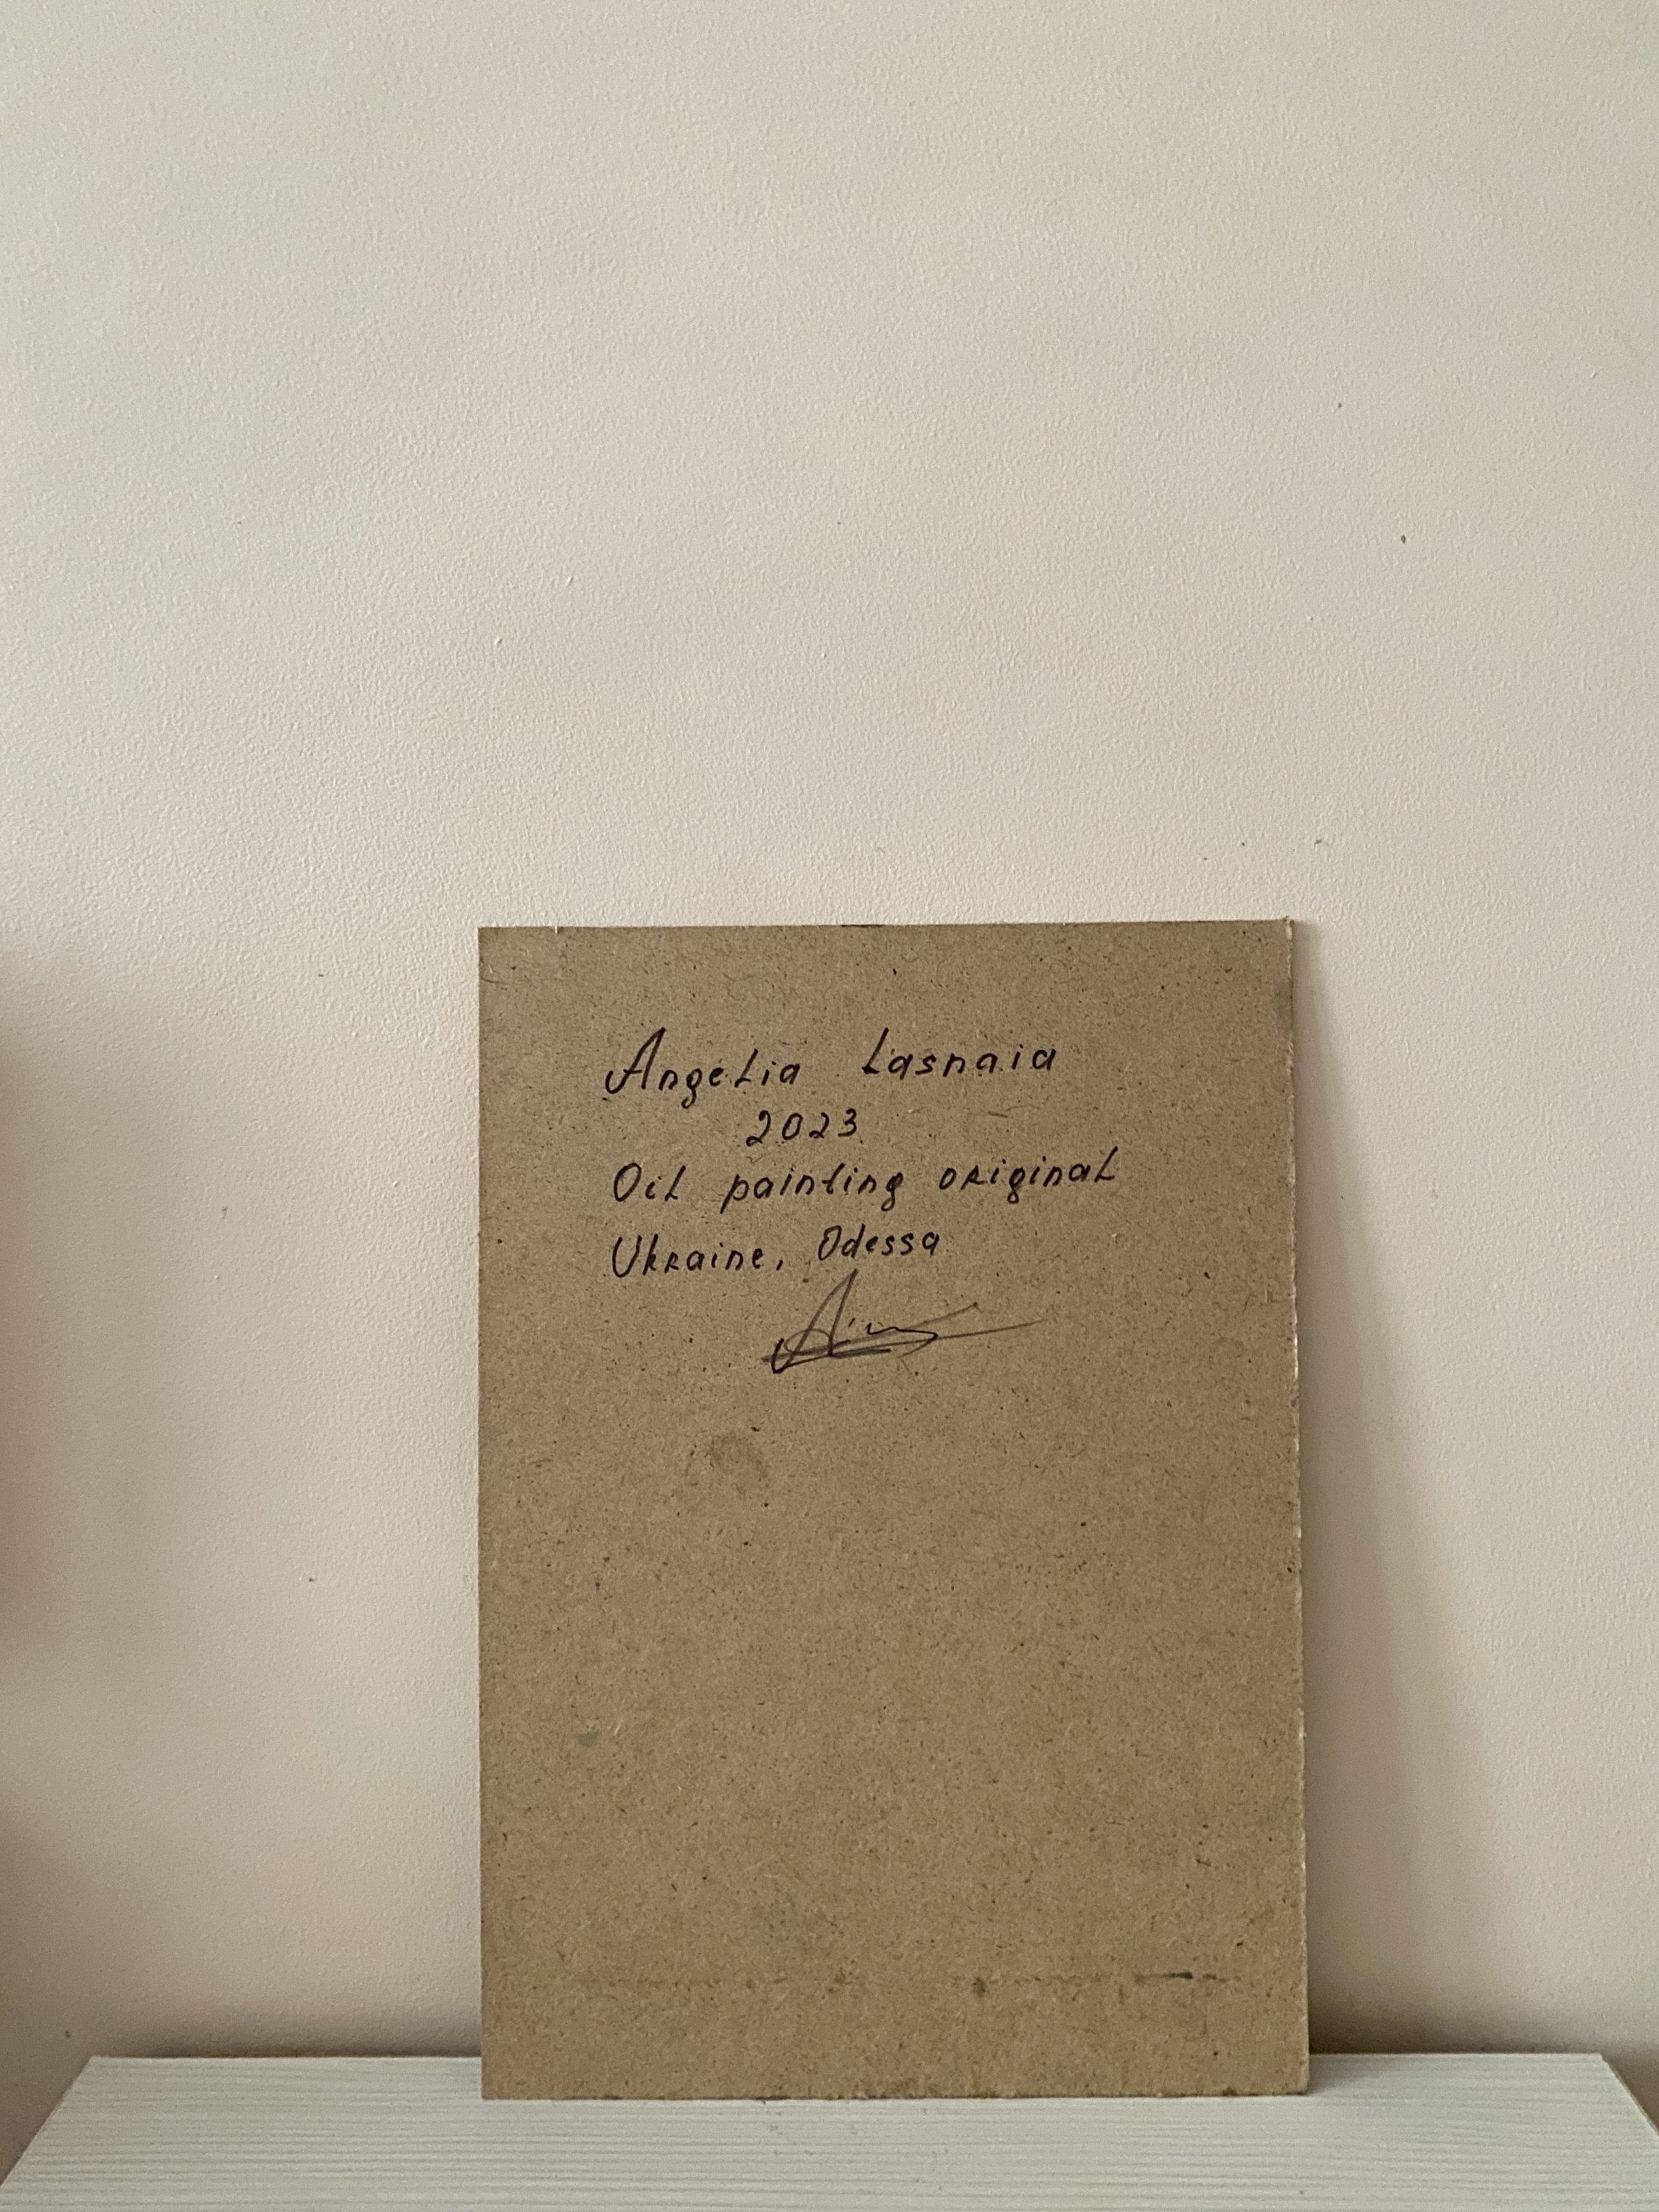 Angelia Lasnaia
2023
Oil painting original
Ukraine, Odessa